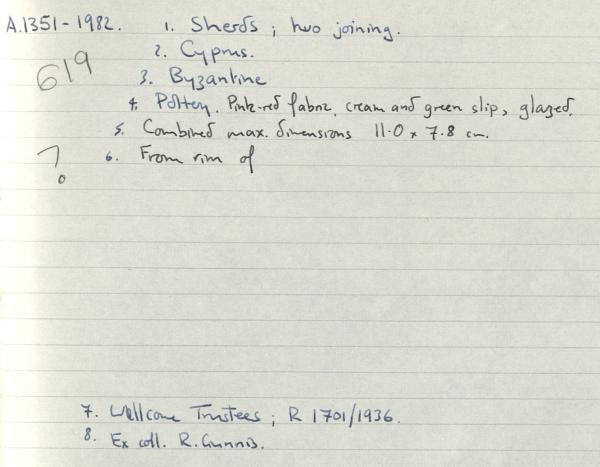 A.1351-1982. 1. Sherds ; two joining.
2. Cyprus.
619
3. Byzantine
4. Pottery. Pink-red fabric, cream and green slip, glazed.
5. Combined max. dimensions 11.0 x 7.8 cm.
? 6. From rim of
7. Wellcome Trustees ; R 1701/1936.
8. Ex coll. R. Gunnis.